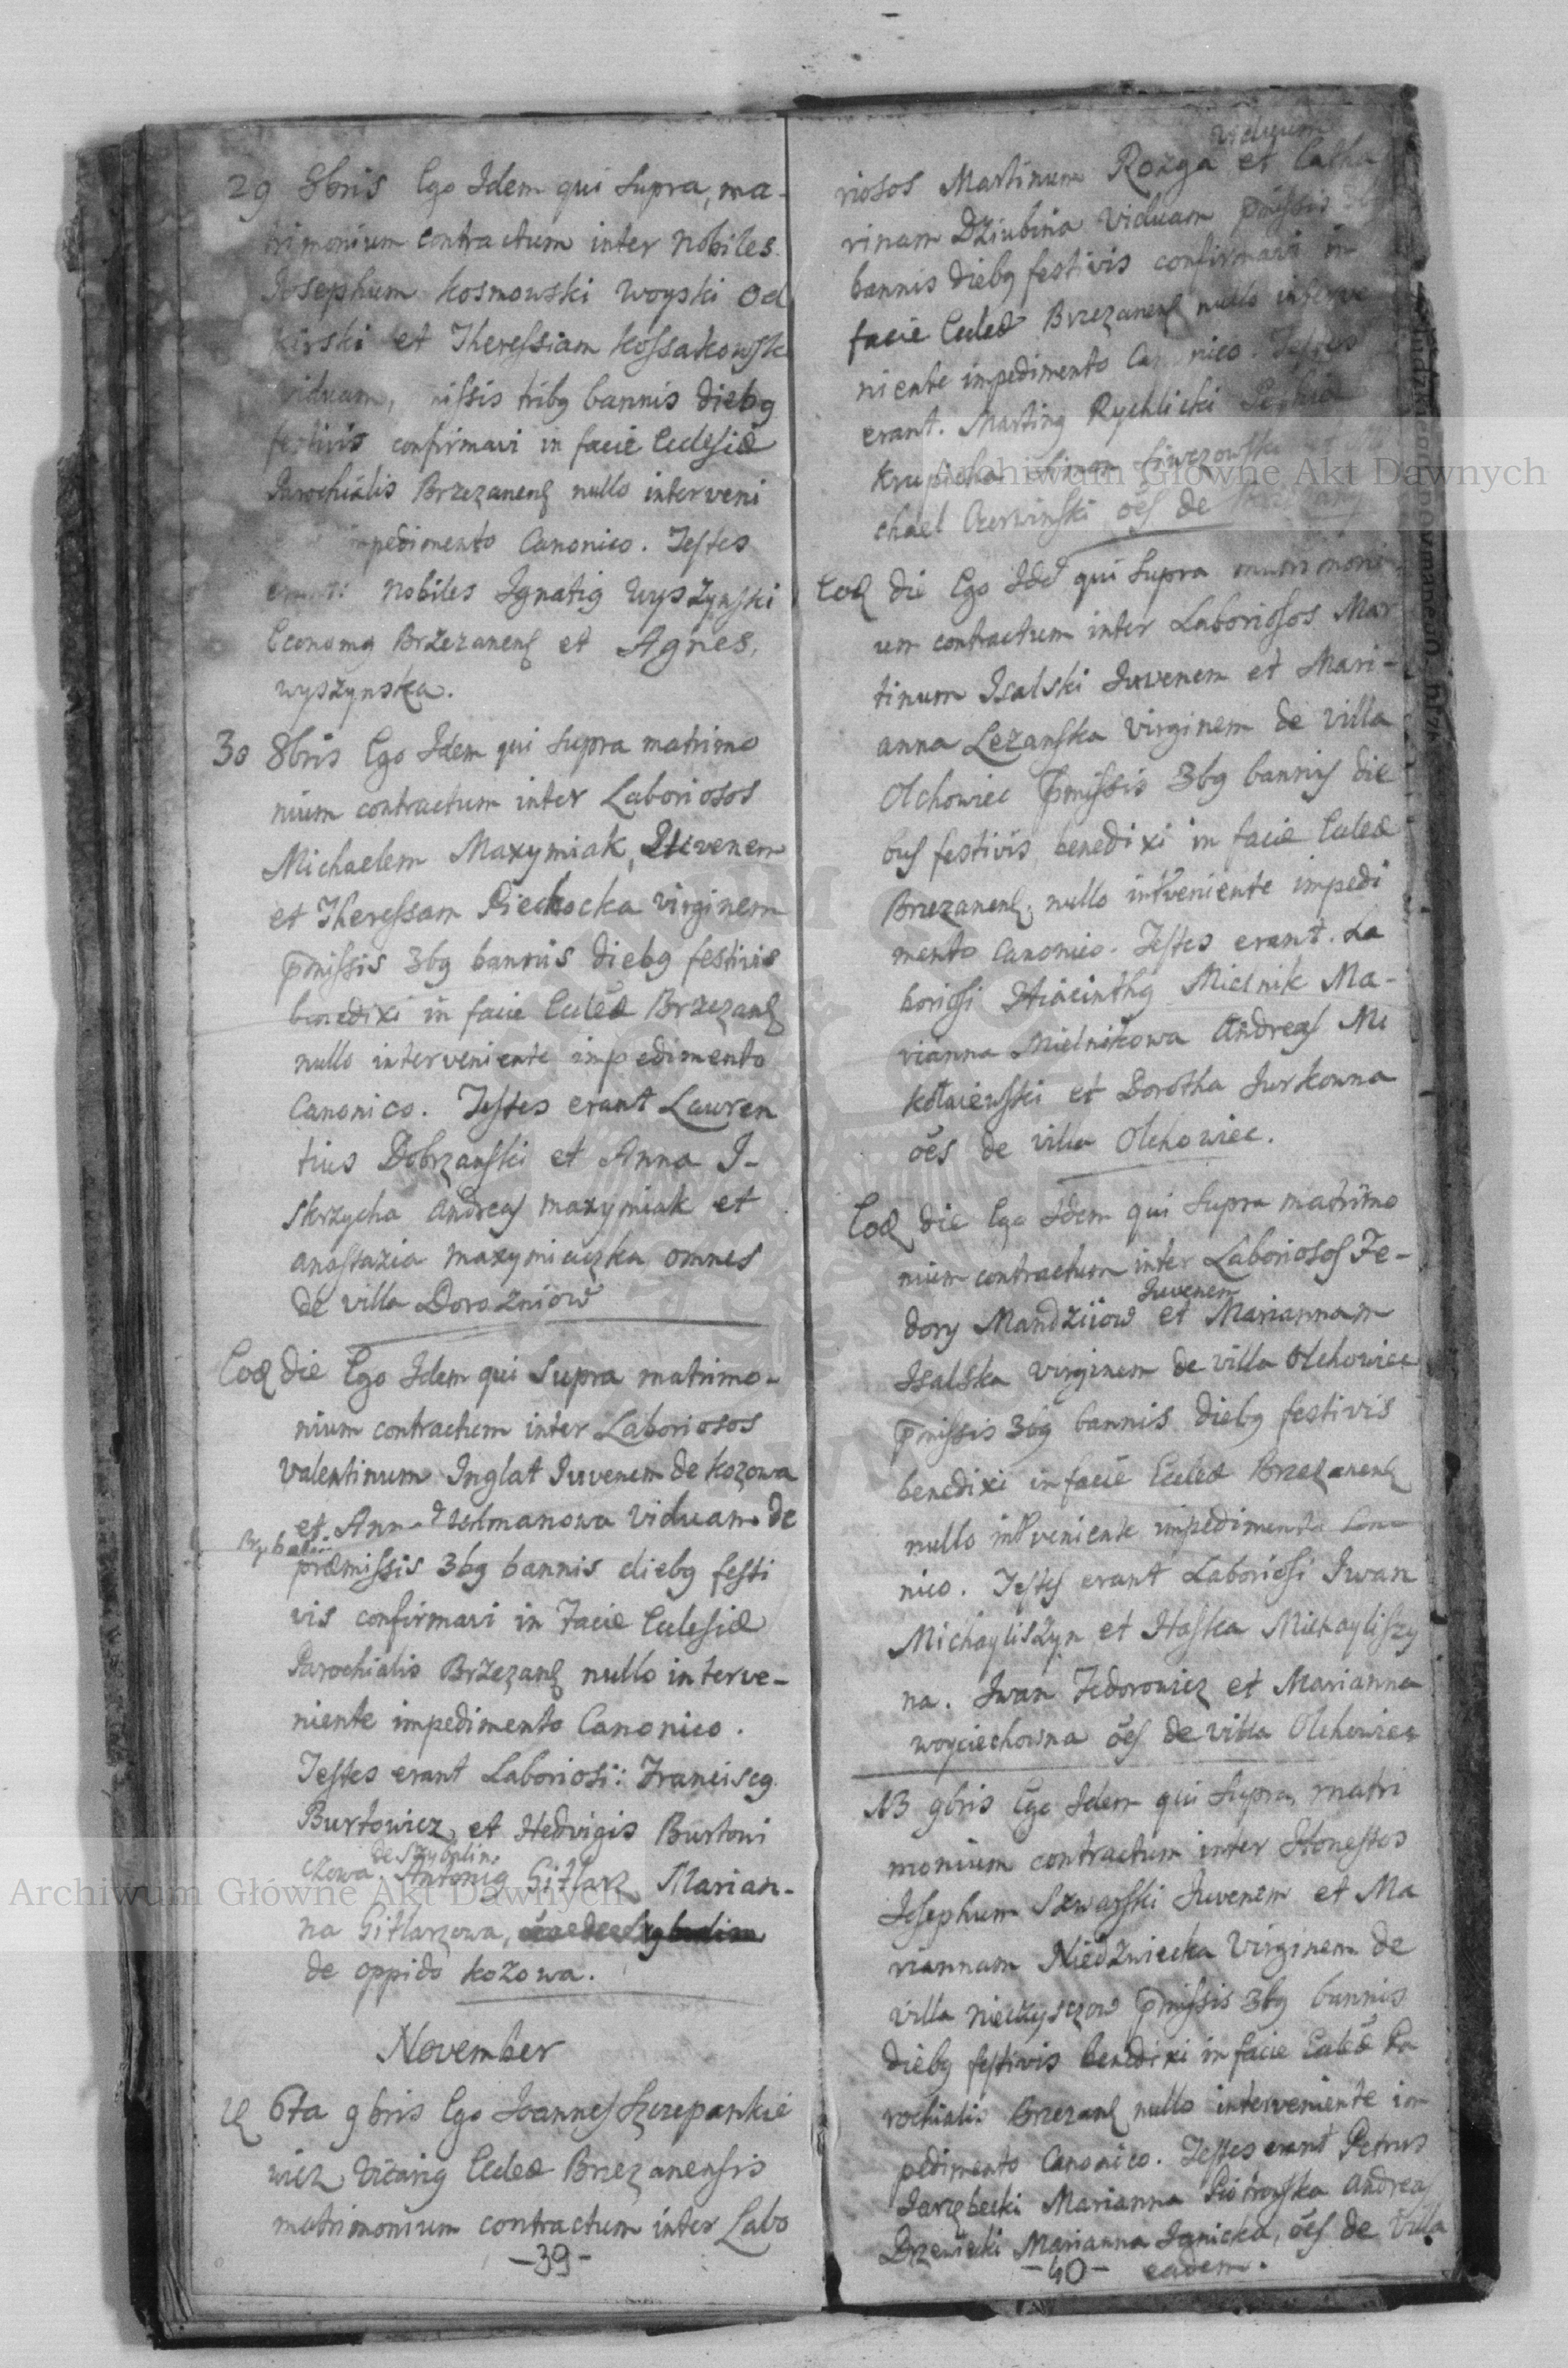 29 8bris Ego Idem qui supra, ma-
trimonium contractum inter Nobiles
Josephum Kosmowski Woyski Od
et Theressiam Kossakowsk
viduam, missis tribg bannis diebg
festivis confirmavi in facie Eclesiæ
Parochialis Brzezanenſ nullo interveni
impedimento Canonico. Testes
erant: Nobiles Ignatig Wyszynski
Economg Brzezanenſ et Agnes,
wyszynska.
30 8bris Ego Idem qui supra matrimo
nium contractum inter Laboriosos
Michaelem Maxymiak, Iuvenem
et Theressam Piechocka virginem
p̄missis 3bg bannis diebg festivis
benedixi in facie Eccleæ Brzezanſ
nullo interveniente impedimento
Canonico. Testes erant Lauren
tius Dobrzanski et Anna I-
skrzycha Andreas maxymiak et
anastazia maxymiaczka omnes
de villa Dorozniow
Eoꝺ die Ego Idem qui supra matrimo-
nium contractum inter Laboriosos
Valentinum Inglat Iuvenem de Kozowa
et Viduam de
præmissis 3bg bannis diebg festi
vis confirmavi in Facie Ecclesiæ
Parochialis Brzezanſ nullo interve-
niente impedimento Canonico.
Testes erant Laboriosi: Franciscg
Burtowicz, et Hedvigis Burtowi
czowa de Szybalin, Antonig Gitlarz, Marian-
na Gitlarzowa,
de oppido Kozowa.
November
6ta 9bris Ego Joannes Szczepankie
wicz Vicarig Eccleæ Brzezanensis
matrimonium contractum inter Labo
-39-
viduum
riosos Martinum Rozga et Catha
rinam Dziubina Viduam p̄missis
bannis diebg festivis confirmavi in
facie Eccleæ Brzezanenſ nullo interve
niente impedimento Canonico. Testes
erant. Marting Rychlicki
chael Czerwinski o̅es de
Eoꝺ die Ego Idē qui supra matrimoni
um contractum inter Laboriosos Mar
tinum Isalski Iuvenem et Mari-
anna Lezanska Virginem de villa
Olchowiec p̄missis 3bg bannis die
bus festivis benedixi in facie Eccleæ
Brzezanenſ, nullo intveniente impedi
mento Canonico. Testes erant. La
boriosi Hiacinthg Mielnik Ma-
rianna Mielnikowa Andreas Mi
kołaiewski et Dorotha Jurkowna
o̅es de villa Olchowiec.
Eoꝺ die Ego Idem qui supra matrimo
nium contractum inter Laboriosos Fe-
dory Mandziiow Iuvenem et Mariannam
Isalska virginem de villa Olchowiec
p̄missis 3bg bannis diebg festivis
benedixi in facie Eccleæ Brzezanenſ
nullo intveniente impedimento Cano
nico. Testes erant Laboriosi Iwan
Michayliszyn et Haska Michayliszy
na. Iwan Fedorowicz et Marianna
woyciechowna o̅es de villa Olchowiec
13 9bris Ego Idem qui supra matri
monium contractum inter Honestos
Josephum Szwarski Iuvenem et Ma
riannam Niedzwiecka Virginem de
villa p̄missis 3bg bannis
diebg festivis benedixi in facie Eccleæ Pa
rochialis Brzezanſ nullo interveniente im
pedimento Canonico. Testes erant Petrus
Jarzębecki Marianna Piotrowska Andreas
Brzezicki Marianna Ignicka, o̅es de villa
-40- eadem.
Archiwum Główne Akt Dawnych
Archiwum Główne Akt Dawnych